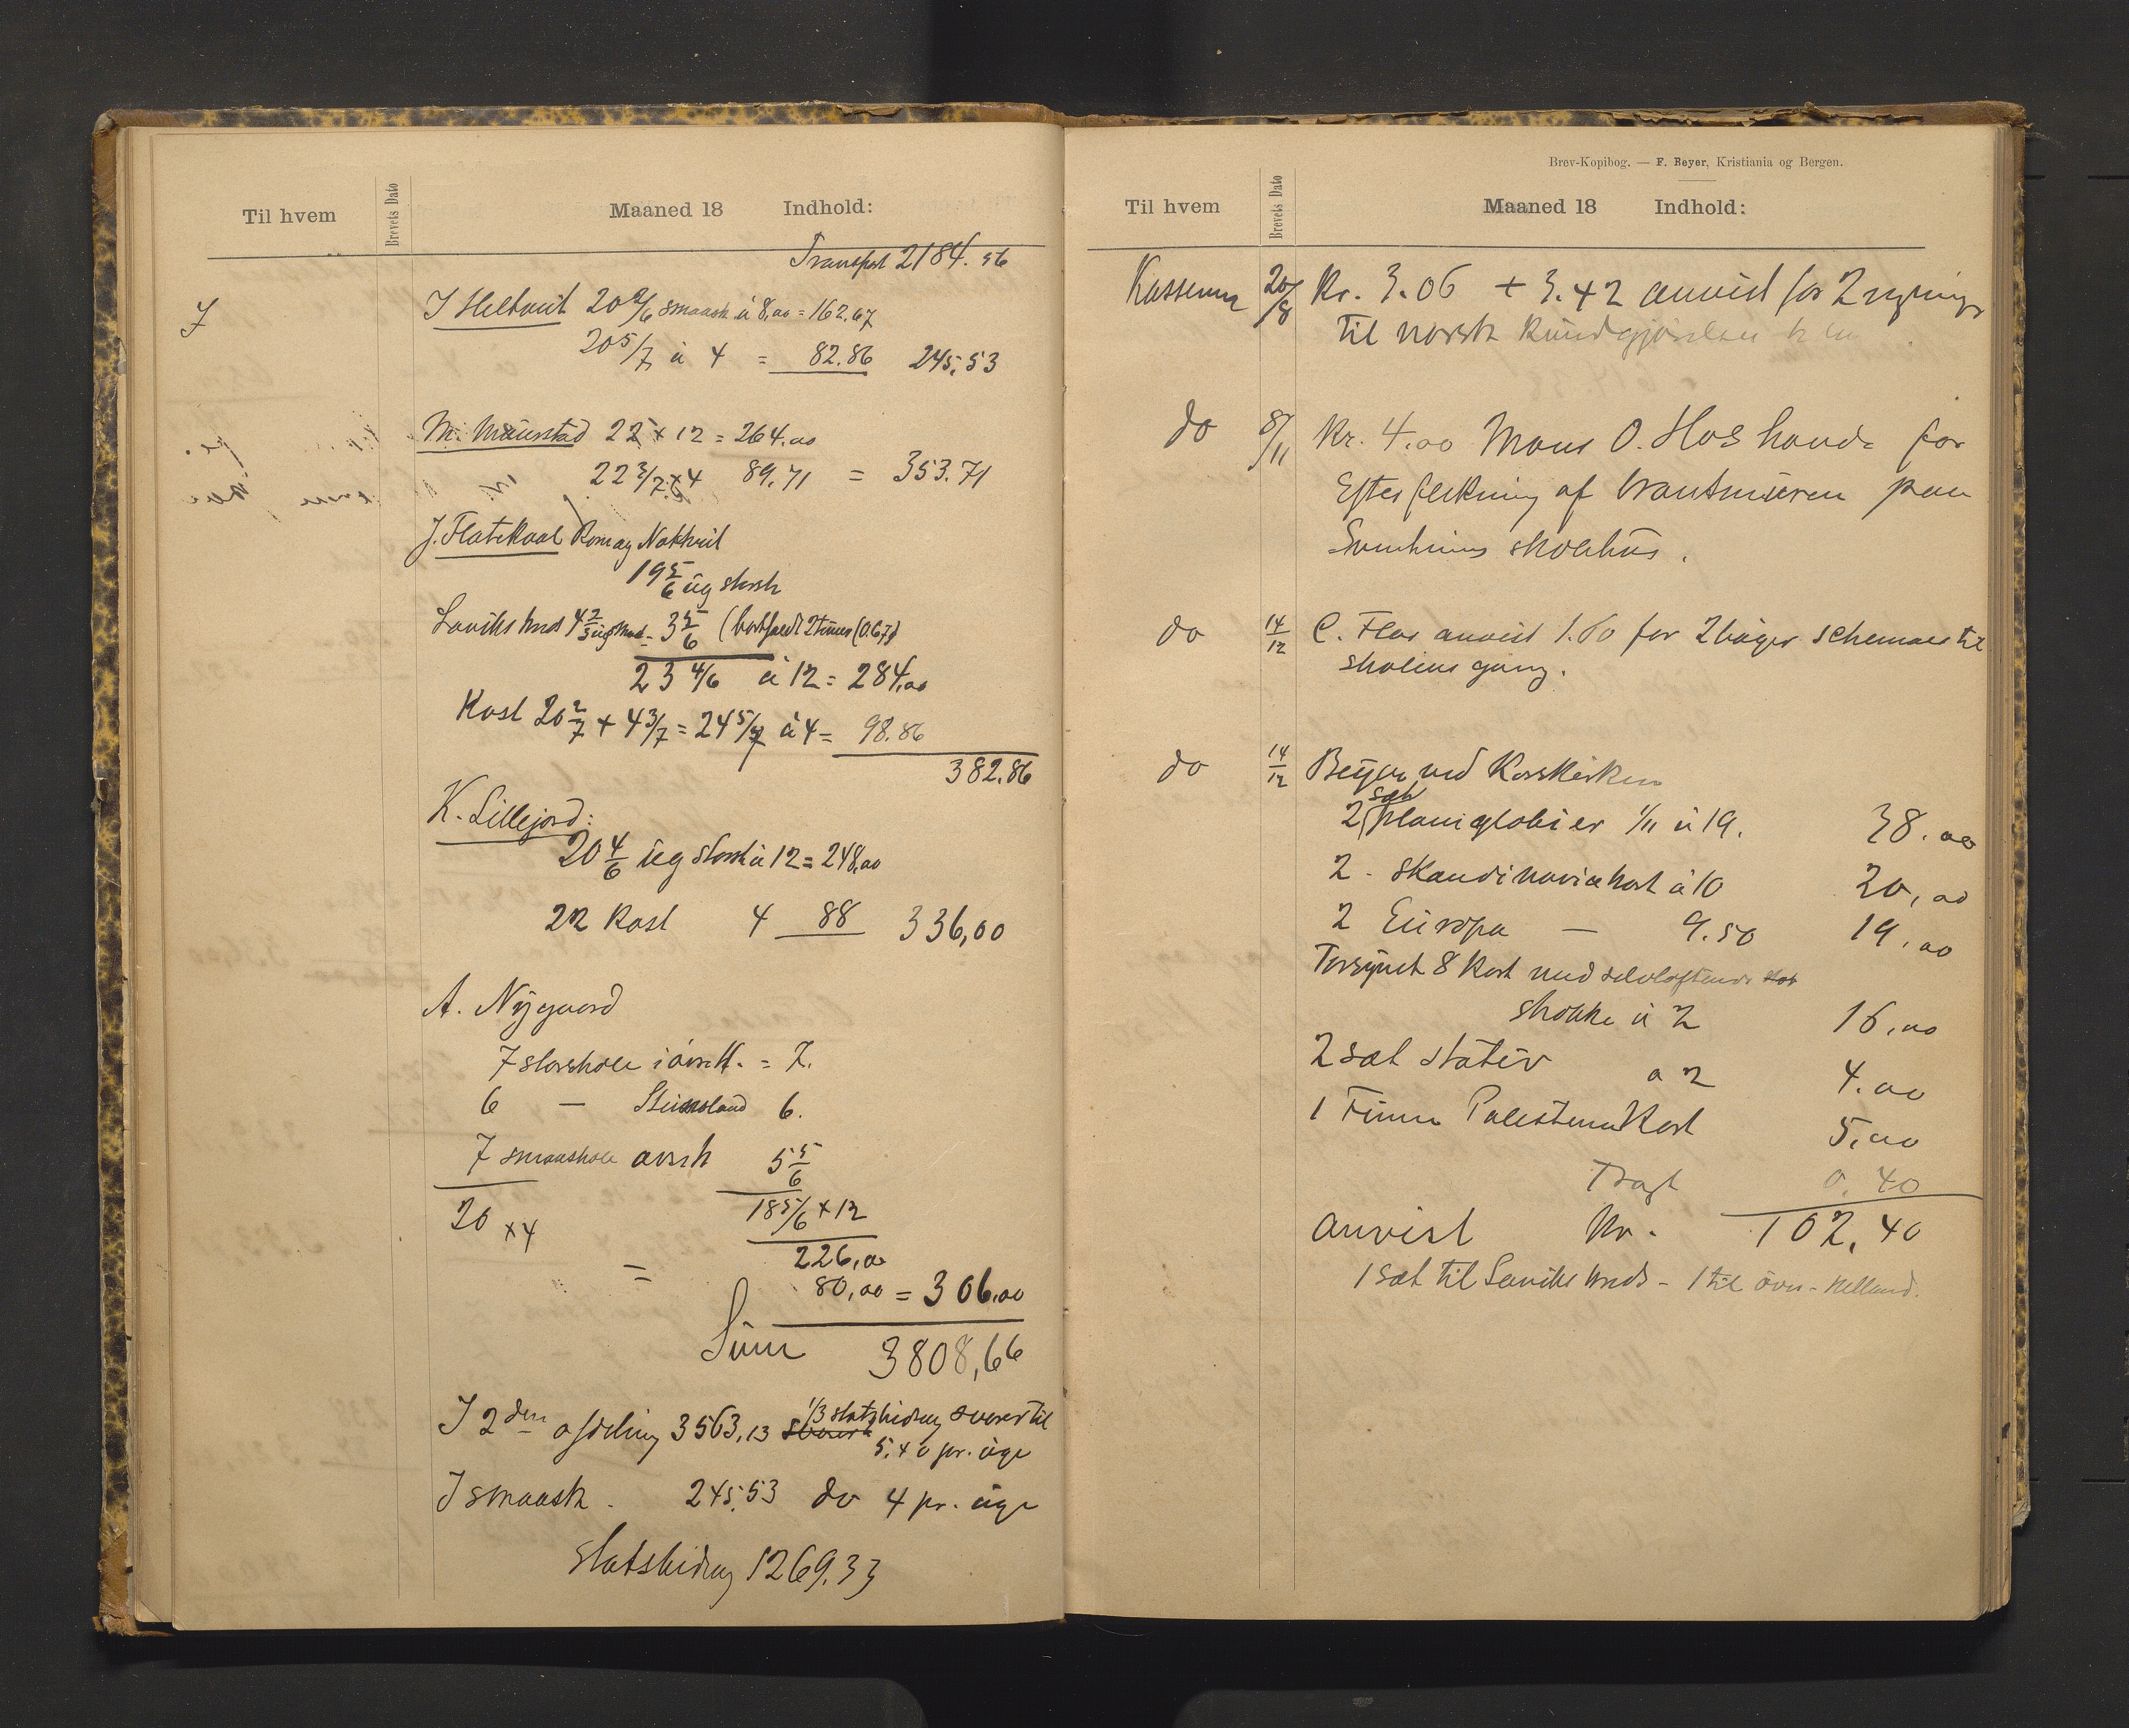 Til hvem
Brevets Dato
Maaned 18 Indhold:
Transport 2184.56
J
J Heltveit 20 2/6 smaask à 8,00 = 162.67
20 5/7 à 4 = 82.86 245,53
M. Maurstad 22 x 12 = 264.00
22 3/7 x 4 89.71 = 353.71
J. Flatekval Rom og Nakkveit
19 5/6 ug storsk
3 5/6 (bortfaldt 2 timer (0.67))
23 4/6 à 12 = 284,00
Kost 20 2/7 + 4 3/7 = 24 5/7 à 4 = 98.86
382.86
K. Lillejord:
20 4/6 ug storsk à 12 = 248,00
22 Kost 4 88 336,00
A. Nygaard
7 storskole i = 7.
6 — Steinsland 6.
7 smaaskole 5 5/6
20 x 4 18 5/6 x 12
226,00
= 80,00 = 306,00
Sum 3808,66
I 2den afdeling 3563,13 1/3 statsbidrag svarer til
5,40 pr. uge
I smaask. 245,53 do 4 pr. uge
statsbidrag 1269.33
Brev-Kopibog. — F. Beyer, Kristiania og Bergen.
Til hvem
Brevets Dato
Maaned 18 Indhold:
Kasserer 20/8 Kr. 3.06 + 3.42 anvist for 2 regninger
til norsk Kundgjørelses
do 8/11 Kr. 4,00 Mons O. Hos for
Efterflekning af brantmuren paa
skolehus.
do 14/12 C. Flor anvist 1.80 for 2 bøger schemaer til
skolens gang.
do 14/12 Beyer ved Korskirken
2 sæt planiglobier 1/11 à 19. 38.00
2 - Skandinavia kort à 10 20,00
2 Europa — 9.50 19,00
Forsynet 8 Kort med selvløftende
stokke à 2 16,00
2 sæt stativ a 2 4.00
1 Palestina Kort 5,00
Fragt 0.40
anvist Kr. 102,40
1 sæt til - 1 til øvre - Helland.